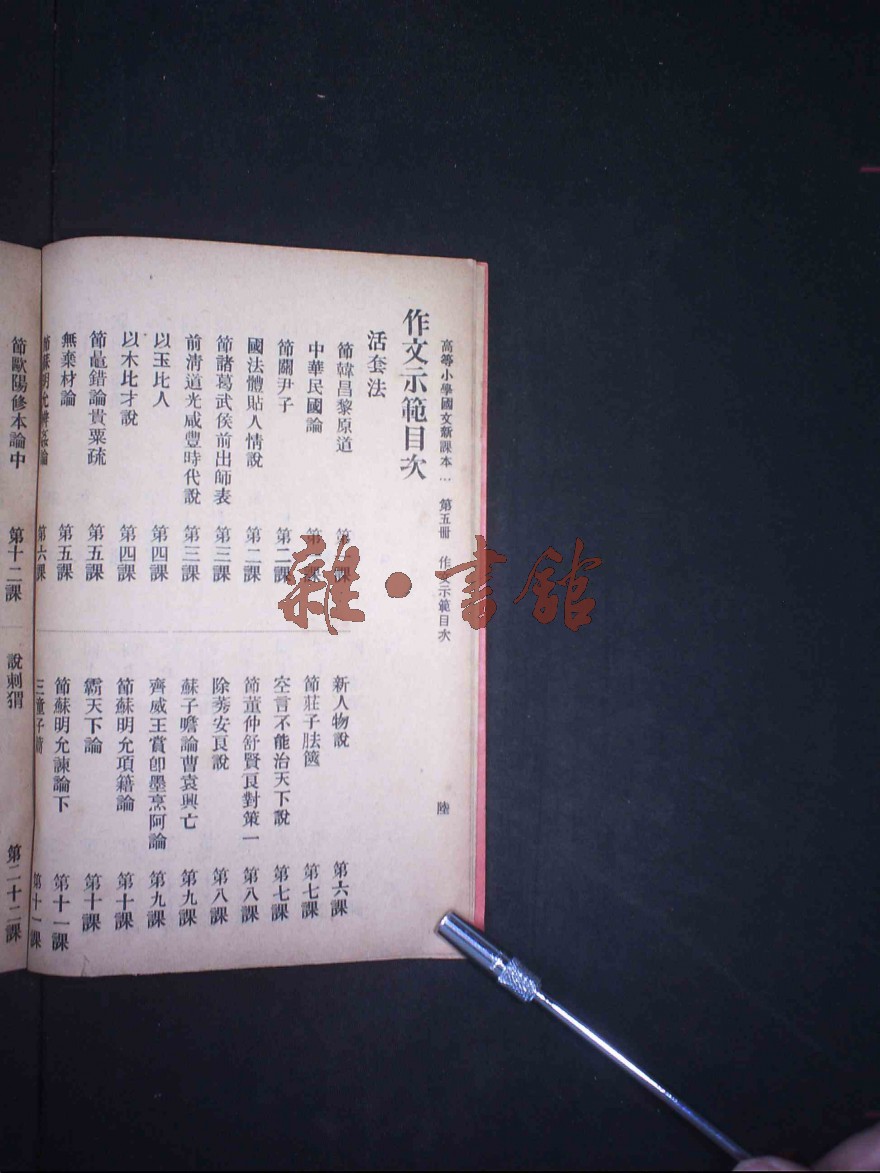 高等小學國文新課本 第五冊 作文示範目次 陸
作文示範目次
活套法
節韓昌黎原道 第一課
中華民國論 第一課
節關尹子 第二課
國法體貼人情說 第二課
節諸葛武侯前出師表 第三課
前淸道光咸豐時代說 第三課
以玉比人 第四課
以木比才說 第四課
節鼂錯論貴粟疏 第五課
無棄材論 第五課
節蘇明允辨姦論 第六課
新人物說 第六課
節莊子胠篋 第七課
空言不能治天下說 第七課
節董仲舒賢良對策一 第八課
除莠安良說 第八課
蘇子瞻論曹袁興亡 第九課
齊威王賞卽墨烹阿論 第九課
節蘇明允項籍論 第十課
霸天下論 第十課
節蘇明允諫論下 第十一課
三童子 第十一課
節歐陽修本論中 第十二課
說刺猬 第二十二課
雜·書館